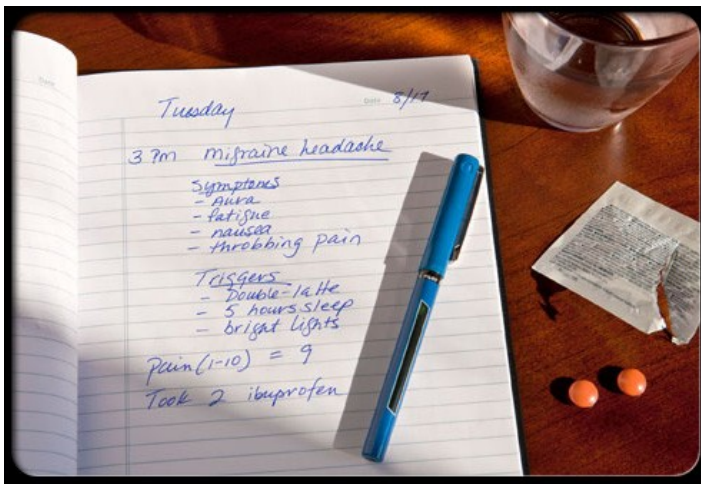 Date
Tuesday
Date 8/17
3 Pm migraine headache
Symptoms
- Aura
- fatigue
- nausea
- throbbing pain
Triggers
- Double-latte
- 5 hours sleep
- bright lights
Pain (1-10) = 9
Took 2 ibuprofen